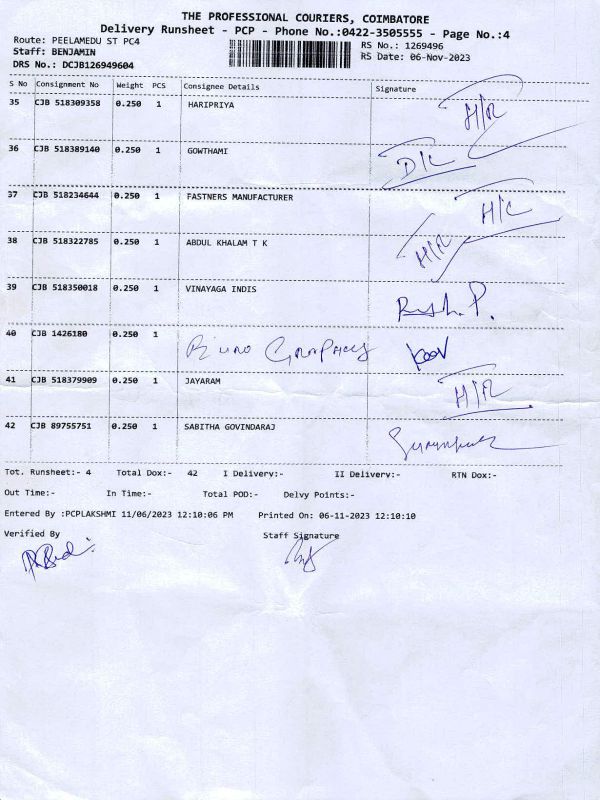 THE PROFESSIONAL COURIERS, COIMBATORE
Delivery Runsheet - PCP - Phone No.:0422-3505555 - Page No.:4
Route: PEELAMEDU ST PC4
RS No.: 1269496
Staff: BENJAMIN
RS Date: 06-Nov-2023
DRS No.: DCJB126949604
S No Consignment No Weight PCS Consignee Details Signature
35 CJB 518309358 0.250 1 HARIPRIYA H/R
36 CJB 518389140 0.250 1 GOWTHAMI D/L
37 CJB 518234644 0.250 1 FASTNERS MANUFACTURER H/C
38 CJB 518322785 0.250 1 ABDUL KHALAM T K H/R
39 CJB 518350018 0.250 1 VINAYAGA INDIS
40 CJB 1426180 0.250 1
41 CJB 518379909 0.250 1 JAYARAM H/R
42 CJB 89755751 0.250 1 SABITHA GOVINDARAJ
Tot. Runsheet:- 4 Total Dox:- 42 I Delivery:- II Delivery:- RTN Dox:-
Out Time:- In Time:- Total POD:- Delvy Points:-
Entered By :PCPLAKSHMI 11/06/2023 12:10:06 PM Printed On: 06-11-2023 12:10:10
Verified By Staff Signature